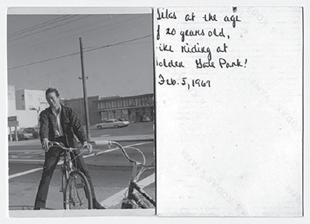 at the age
f 20 years old,
ike riding at
olden Gate Park!
Feb. 5, 1967